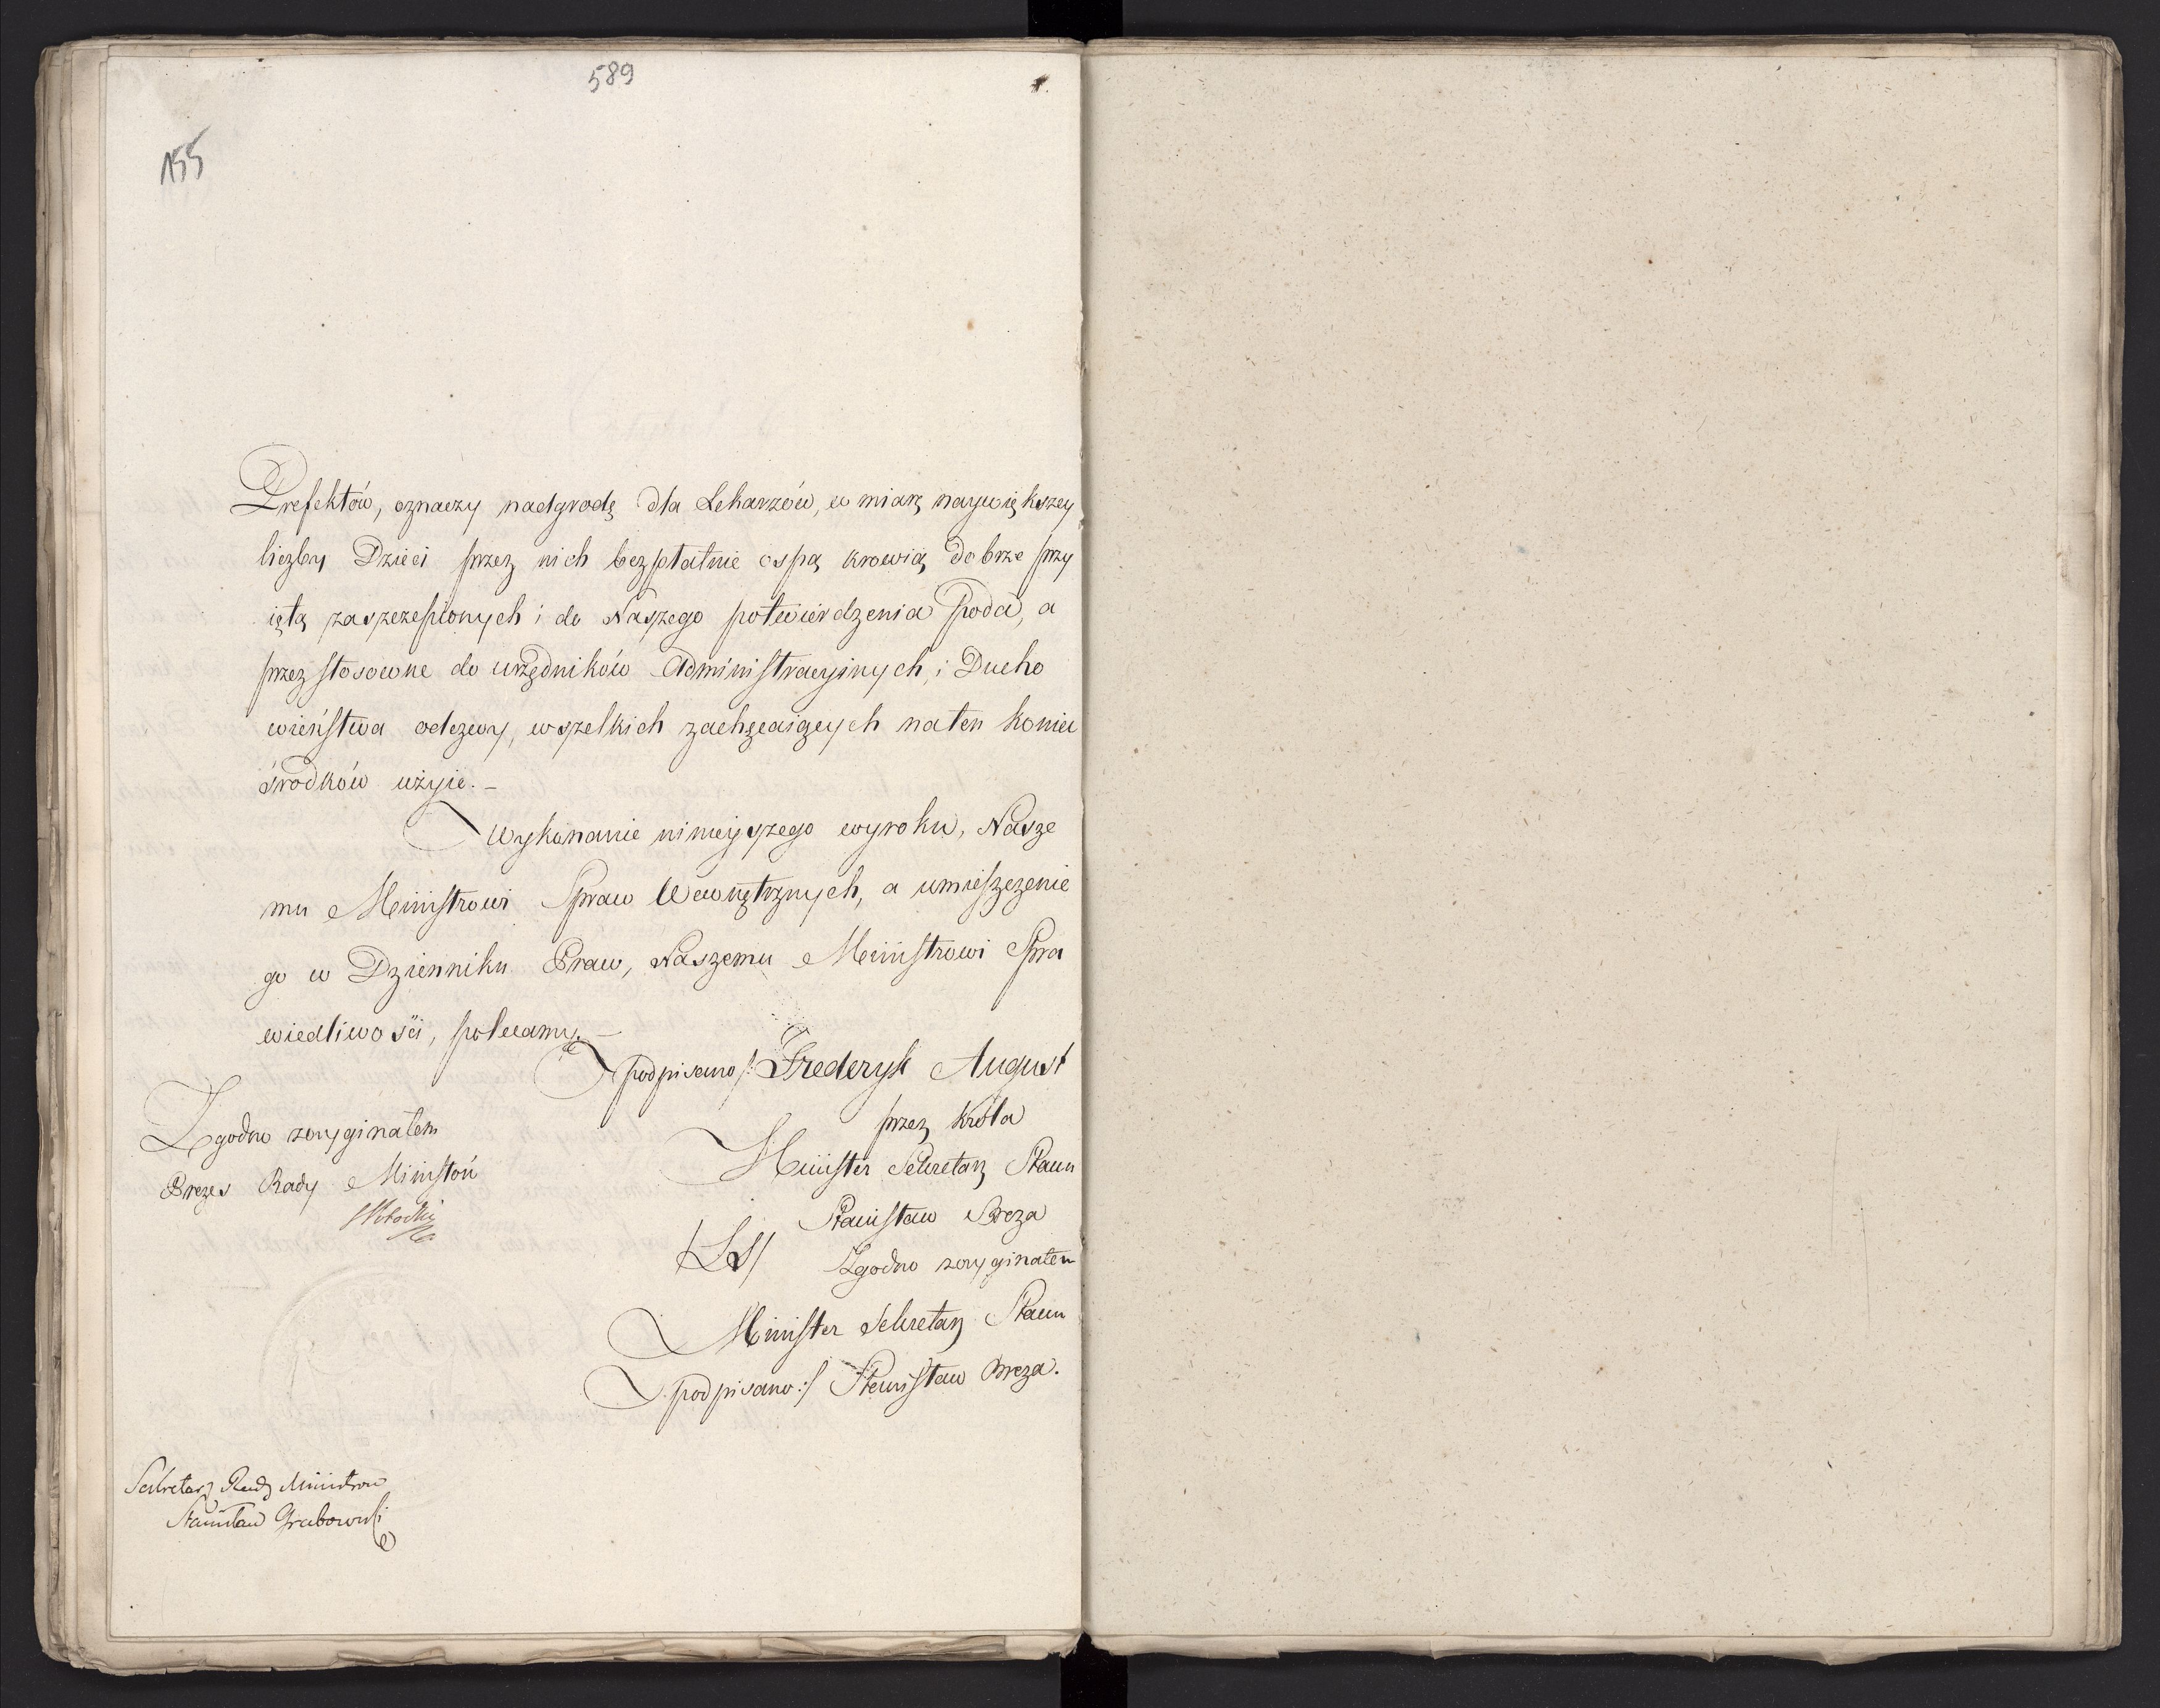 589
155
Prefektów, oznaczy nadgrodę dla Lekarzów, w miarę naywiększey
liczby Dzieci przez nich bezpłatnie ospą krowią dobrze przy
iętą zaszczepionych i do Naszego potwierdzenia poda, a
przez stosowne do urzędników Administracyinych, i Ducho
wieństwa odezwy, wszelkich zachęcaiących na ten koniec
środków użyie. –
Wykonanie ninieyszego wyroku, Nasze
mu Ministrowi Spraw Wewnętrznych, a umieszczenie
go w Dzienniku Praw, Naszemu Ministrowi Spra
wiedliwości, polecamy. –
podpisano /: Frederyk August
przez Króla
Minister Sekretarz Stanu
Stanisław Breza
/LS/ Zgodno z oryginałem
Minister Sekretarz Stanu
podpisano :/ Stanisław Breza.
Zgodno z oryginałem
Prezes Rady Ministrów
Sekretarz Rady Ministrow
Stanisław Grabowski